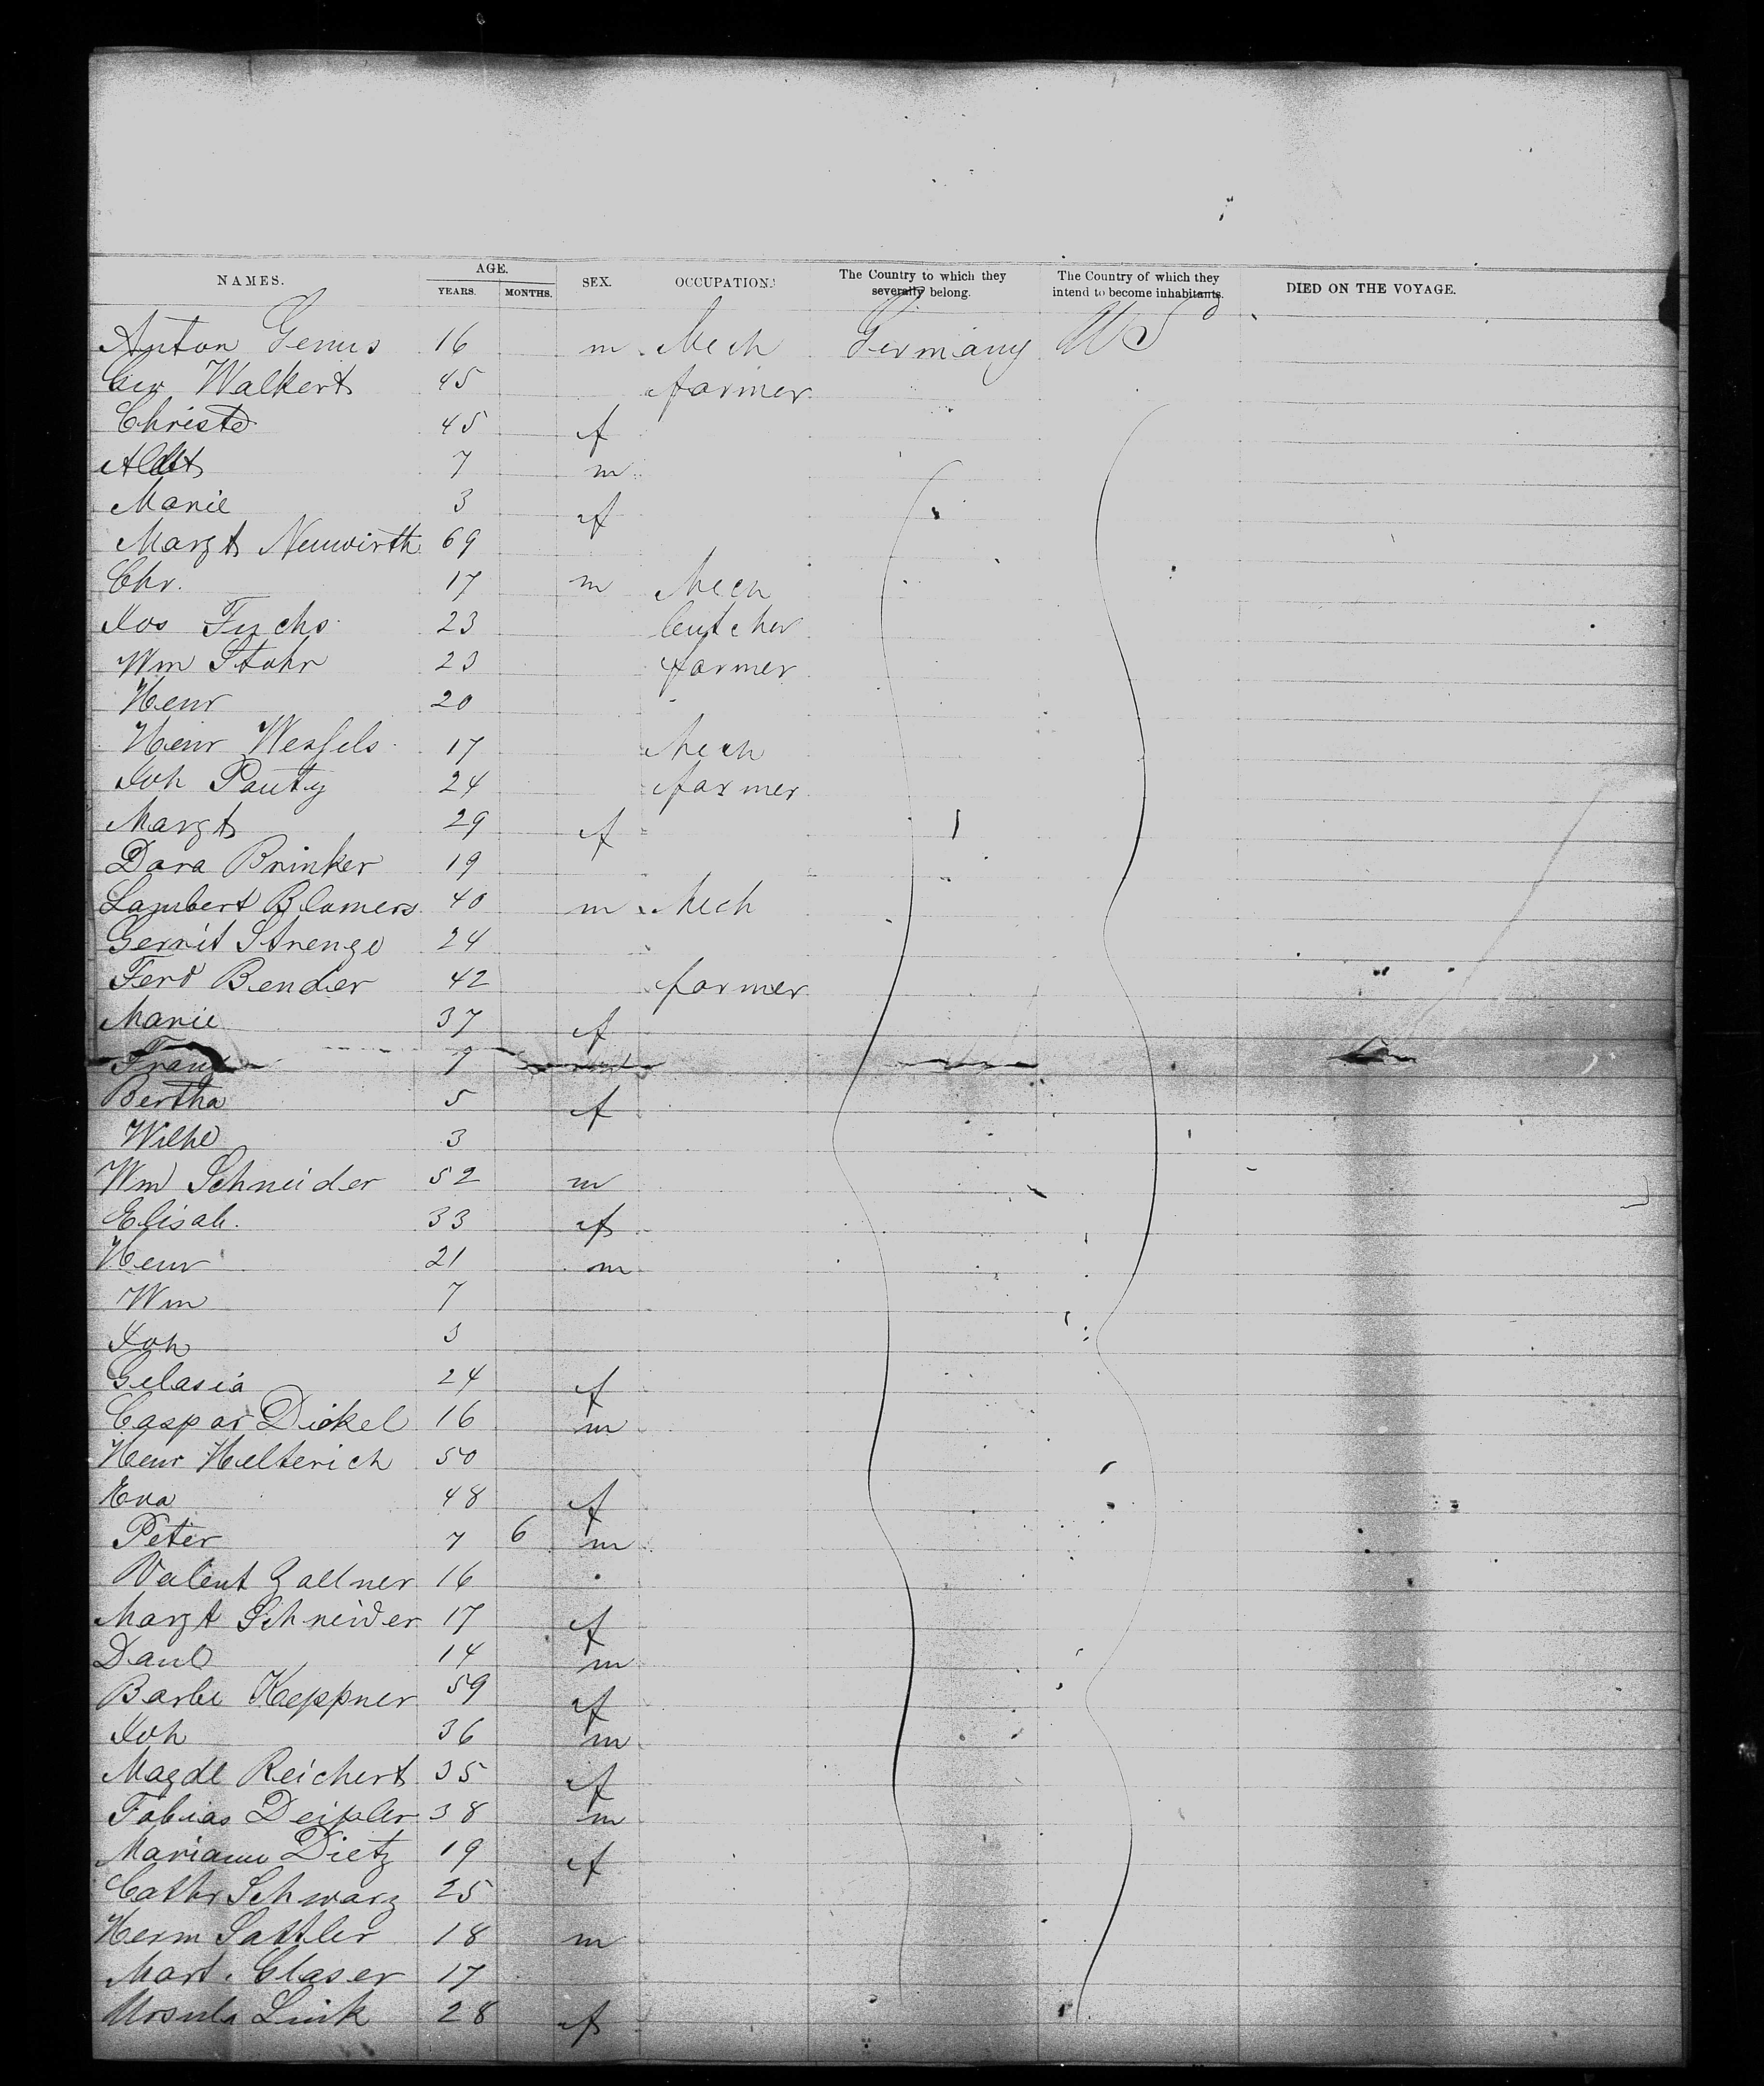 NAMES. AGE. YEARS. MONTHS. SEX. OCCUPATION. The Country to which they severally belong. The Country of which they intend to become inhabitants. DIED ON THE VOYAGE.
Anton Genus 16 m Mech Germany US
Geo Walkert 45 farmer
Christe 45 f
7 m
Marie 3 f
Margt Neuwirth 69
Chr. 17 m Mech
Jos Fuchs 23 butcher
Wm Stohr 23 farmer
Henr 20
Henr Wessels 17 Mech
Joh Pauty 24 farmer
Margt 29 f
Dora Brinker 19
Lambert Blomers 40 m Mech
Gerrit Strenge 24
Ferd Bender 42 farmer
Marie 37 f
Franz 7
Bertha 5 f
Wilhe 3
Wm Schneider 52 m
Elisab. 33 f
Henr 21 m
Wm 7
Joh 3
Gelasia 24 f
Caspar Dickel 16 m
Henr Helterich 50
Eva 48 f
Peter 7 6 m
Valent Zallner 16
Margt Schneider 17 f
Danl 14 m
Barbe Keppner 59 f
Joh 36 m
Magdl Reichert 35 f
Tobias Deissler 38 m
Mariann Dietz 19 f
Cathr Schwarz 25
Herm Sattler 18 m
Mart. Glaser 17
Ursula Link 28 f